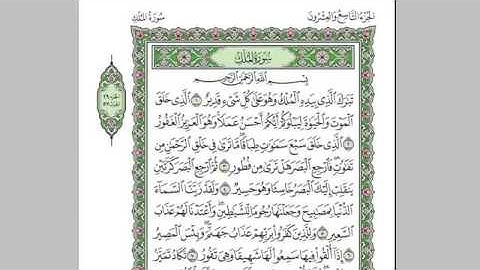 سُورَةُ المُلْكِ
الجُزْءُ التَّاسِعُ وَالعِشْرُونَ
سُورَةُ المُلْكِ
بِسْمِ اللَّهِ الرَّحْمَٰنِ الرَّحِيمِ
تَبَٰرَكَ ٱلَّذِى بِيَدِهِ ٱلْمُلْكُ وَهُوَ عَلَىٰ كُلِّ شَىْءٍ قَدِيرٌ ۝١ ٱلَّذِى خَلَقَ
ٱلْمَوْتَ وَٱلْحَيَوٰةَ لِيَبْلُوَكُمْ أَيُّكُمْ أَحْسَنُ عَمَلًا وَهُوَ ٱلْعَزِيزُ ٱلْغَفُورُ
۝٢ ٱلَّذِى خَلَقَ سَبْعَ سَمَٰوَٰتٍ طِبَاقًا مَّا تَرَىٰ فِى خَلْقِ ٱلرَّحْمَٰنِ مِن
تَفَٰوُتٍ فَٱرْجِعِ ٱلْبَصَرَ هَلْ تَرَىٰ مِن فُطُورٍ ۝٣ ثُمَّ ٱرْجِعِ ٱلْبَصَرَ كَرَّتَيْنِ
يَنقَلِبْ إِلَيْكَ ٱلْبَصَرُ خَاسِئًا وَهُوَ حَسِيرٌ ۝٤ وَلَقَدْ زَيَّنَّا ٱلسَّمَآءَ
ٱلدُّنْيَا بِمَصَٰبِيحَ وَجَعَلْنَٰهَا رُجُومًا لِّلشَّيَٰطِينِ وَأَعْتَدْنَا لَهُمْ عَذَابَ
ٱلسَّعِيرِ ۝٥ وَلِلَّذِينَ كَفَرُوا۟ بِرَبِّهِمْ عَذَابُ جَهَنَّمَ وَبِئْسَ ٱلْمَصِيرُ
۝٦ إِذَآ أُلْقُوا۟ فِيهَا سَمِعُوا۟ لَهَا شَهِيقًا وَهِىَ تَفُورُ ۝٧ تَكَادُ تَمَيَّزُ